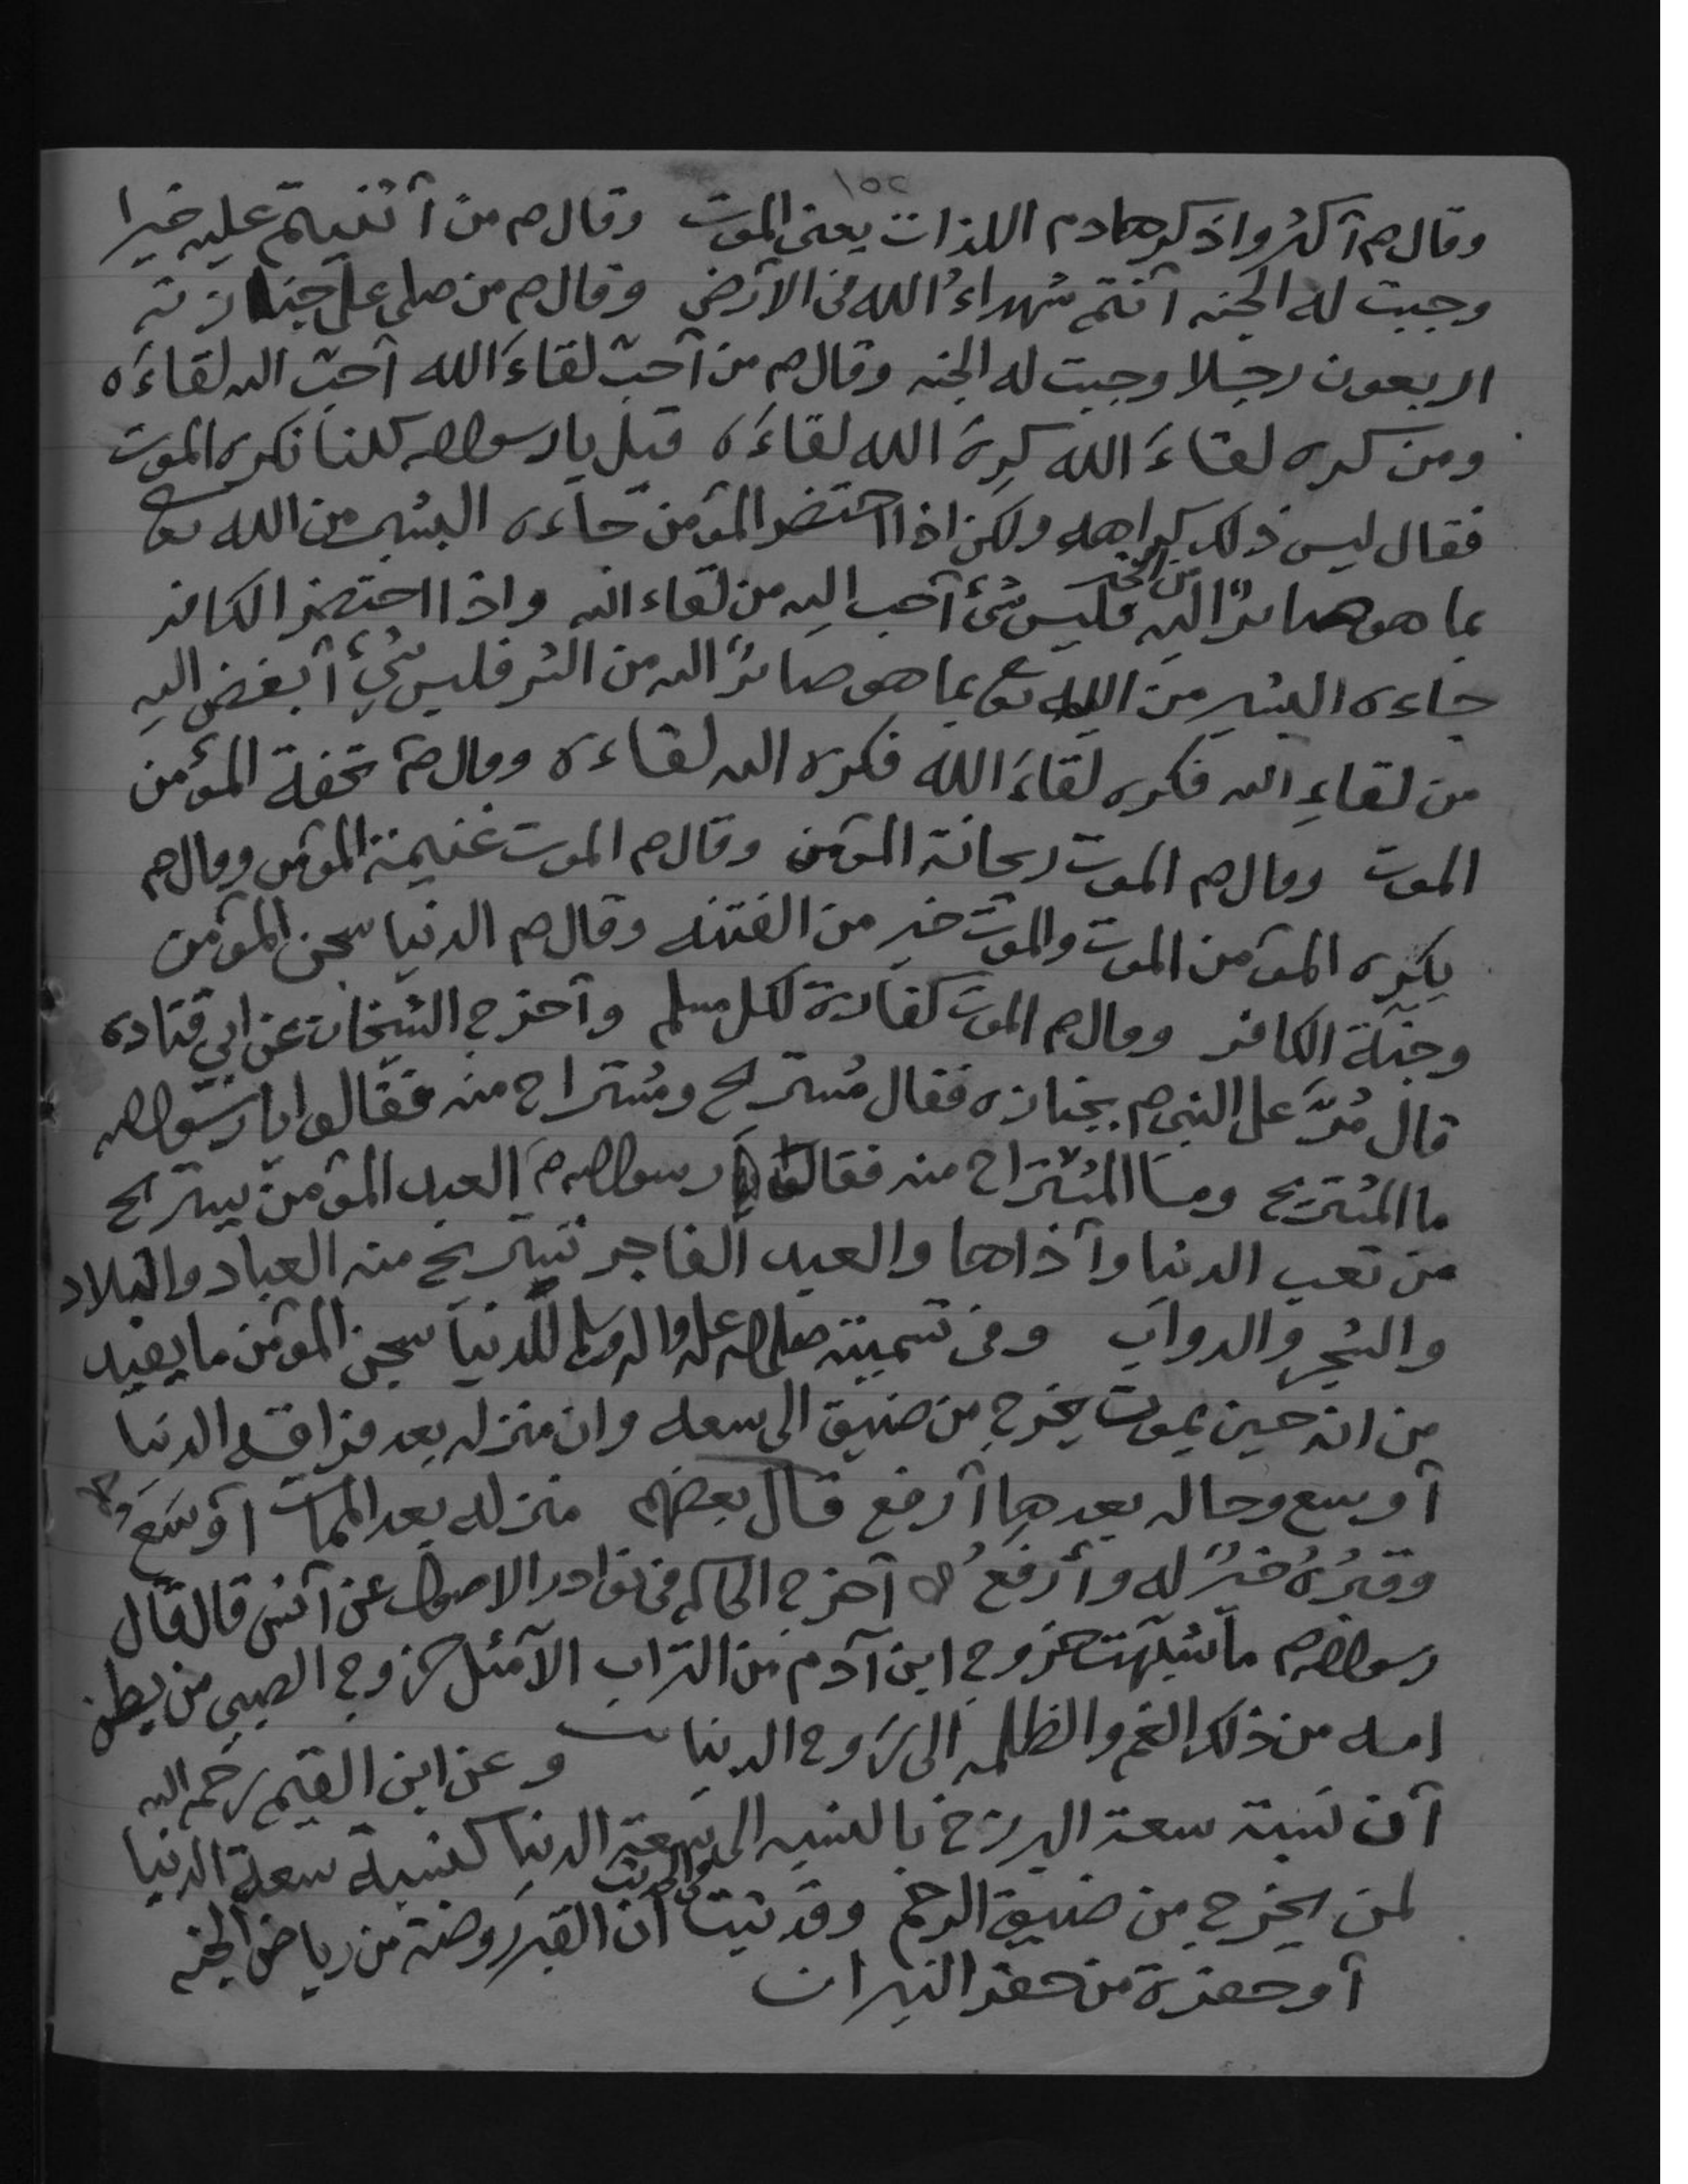 ١٥٢
وقال صم أكثروا ذكر هادم اللذات يعني الموت وقال صم من أثنيتم عليه خيرا
وجبت له الجنه أنتم شهداءُ الله في الأرض وقال صم من صلى على جنازته
اربعون رجلا وجبت له الجنه وقال صم من أحبّ لقاءَ الله أحبّ الله لقاءَه
ومن كره لقاءَ الله كرِهَ الله لقاءَه قيل يا رسول الله كلنا نكره الموت
فقال ليس ذلك كراهه ولكن اذا احتضر المؤمن جاءه البشير من الله تعالى
بما هو صائرٌ اليه من الخير فليس شئ أحب اليه من لقاء الله واذا احتضر الكافر
جاءه البشير من الله تع بما هو صائرٌ اليه من الشر فليس شيء أبغض اليه
من لقاءِ الله فكره لقاءَ الله فكره الله لقاءه وقال صم تحفة المؤمن
الموت وقال صم الموت ريحانة المؤمن وقال صم الموت غنيمة المؤمن وقال صم
يكره المؤمن الموت والموت خير من الفتنه وقال صم الدنيا سجن المؤمن
وجنّة الكافر وقال صم الموت كفارة لكل مسلم وأخرج الشيخان عن ابي قتاده
قال مُرَّ على النبي صم بجنازه فقال مُستريح ومُستراح منه فقالوا يا رسول الله
ما المُستريح وما المُستراح منه فقال رسول الله صم العبد المؤمن يستريح
من تعب الدنيا وأذاها والعبد الفاجر تستريح منه العباد والبلاد
والشجر والدواب وفي تسميته صلى الله عليه واله وسلم للدنيا سجن المؤمن ما يفيد
من انه حين يموت يخرج من ضيق الى سعه وان منزله بعد فراقه الدنيا
أوسع وحاله بعدها أرفع قال بعضهم منزله بعد الممات أوسَعُ
وقبرُهُ خيرٌ له وأرفعُ أخرج الحاكم في نوادر الاصول عن أنس قال قال
رسول الله صم ما شبّهت خروج ابن آدم من التراب الا مثل خروج الصبي من بطن
امه من ذلك الغم والظلمه الى رَوح الدنيا وعن ابن القيم رحمه الله
أن نسبة سعة البرزخ بالنسبه الى سعة الدنيا كنسبة سعة الدنيا
لمن يخرج من ضيق الرحم وقد ثبت في الحديث أن القبر روضة من رياض الجنه
أو حفرة من حفر النيران